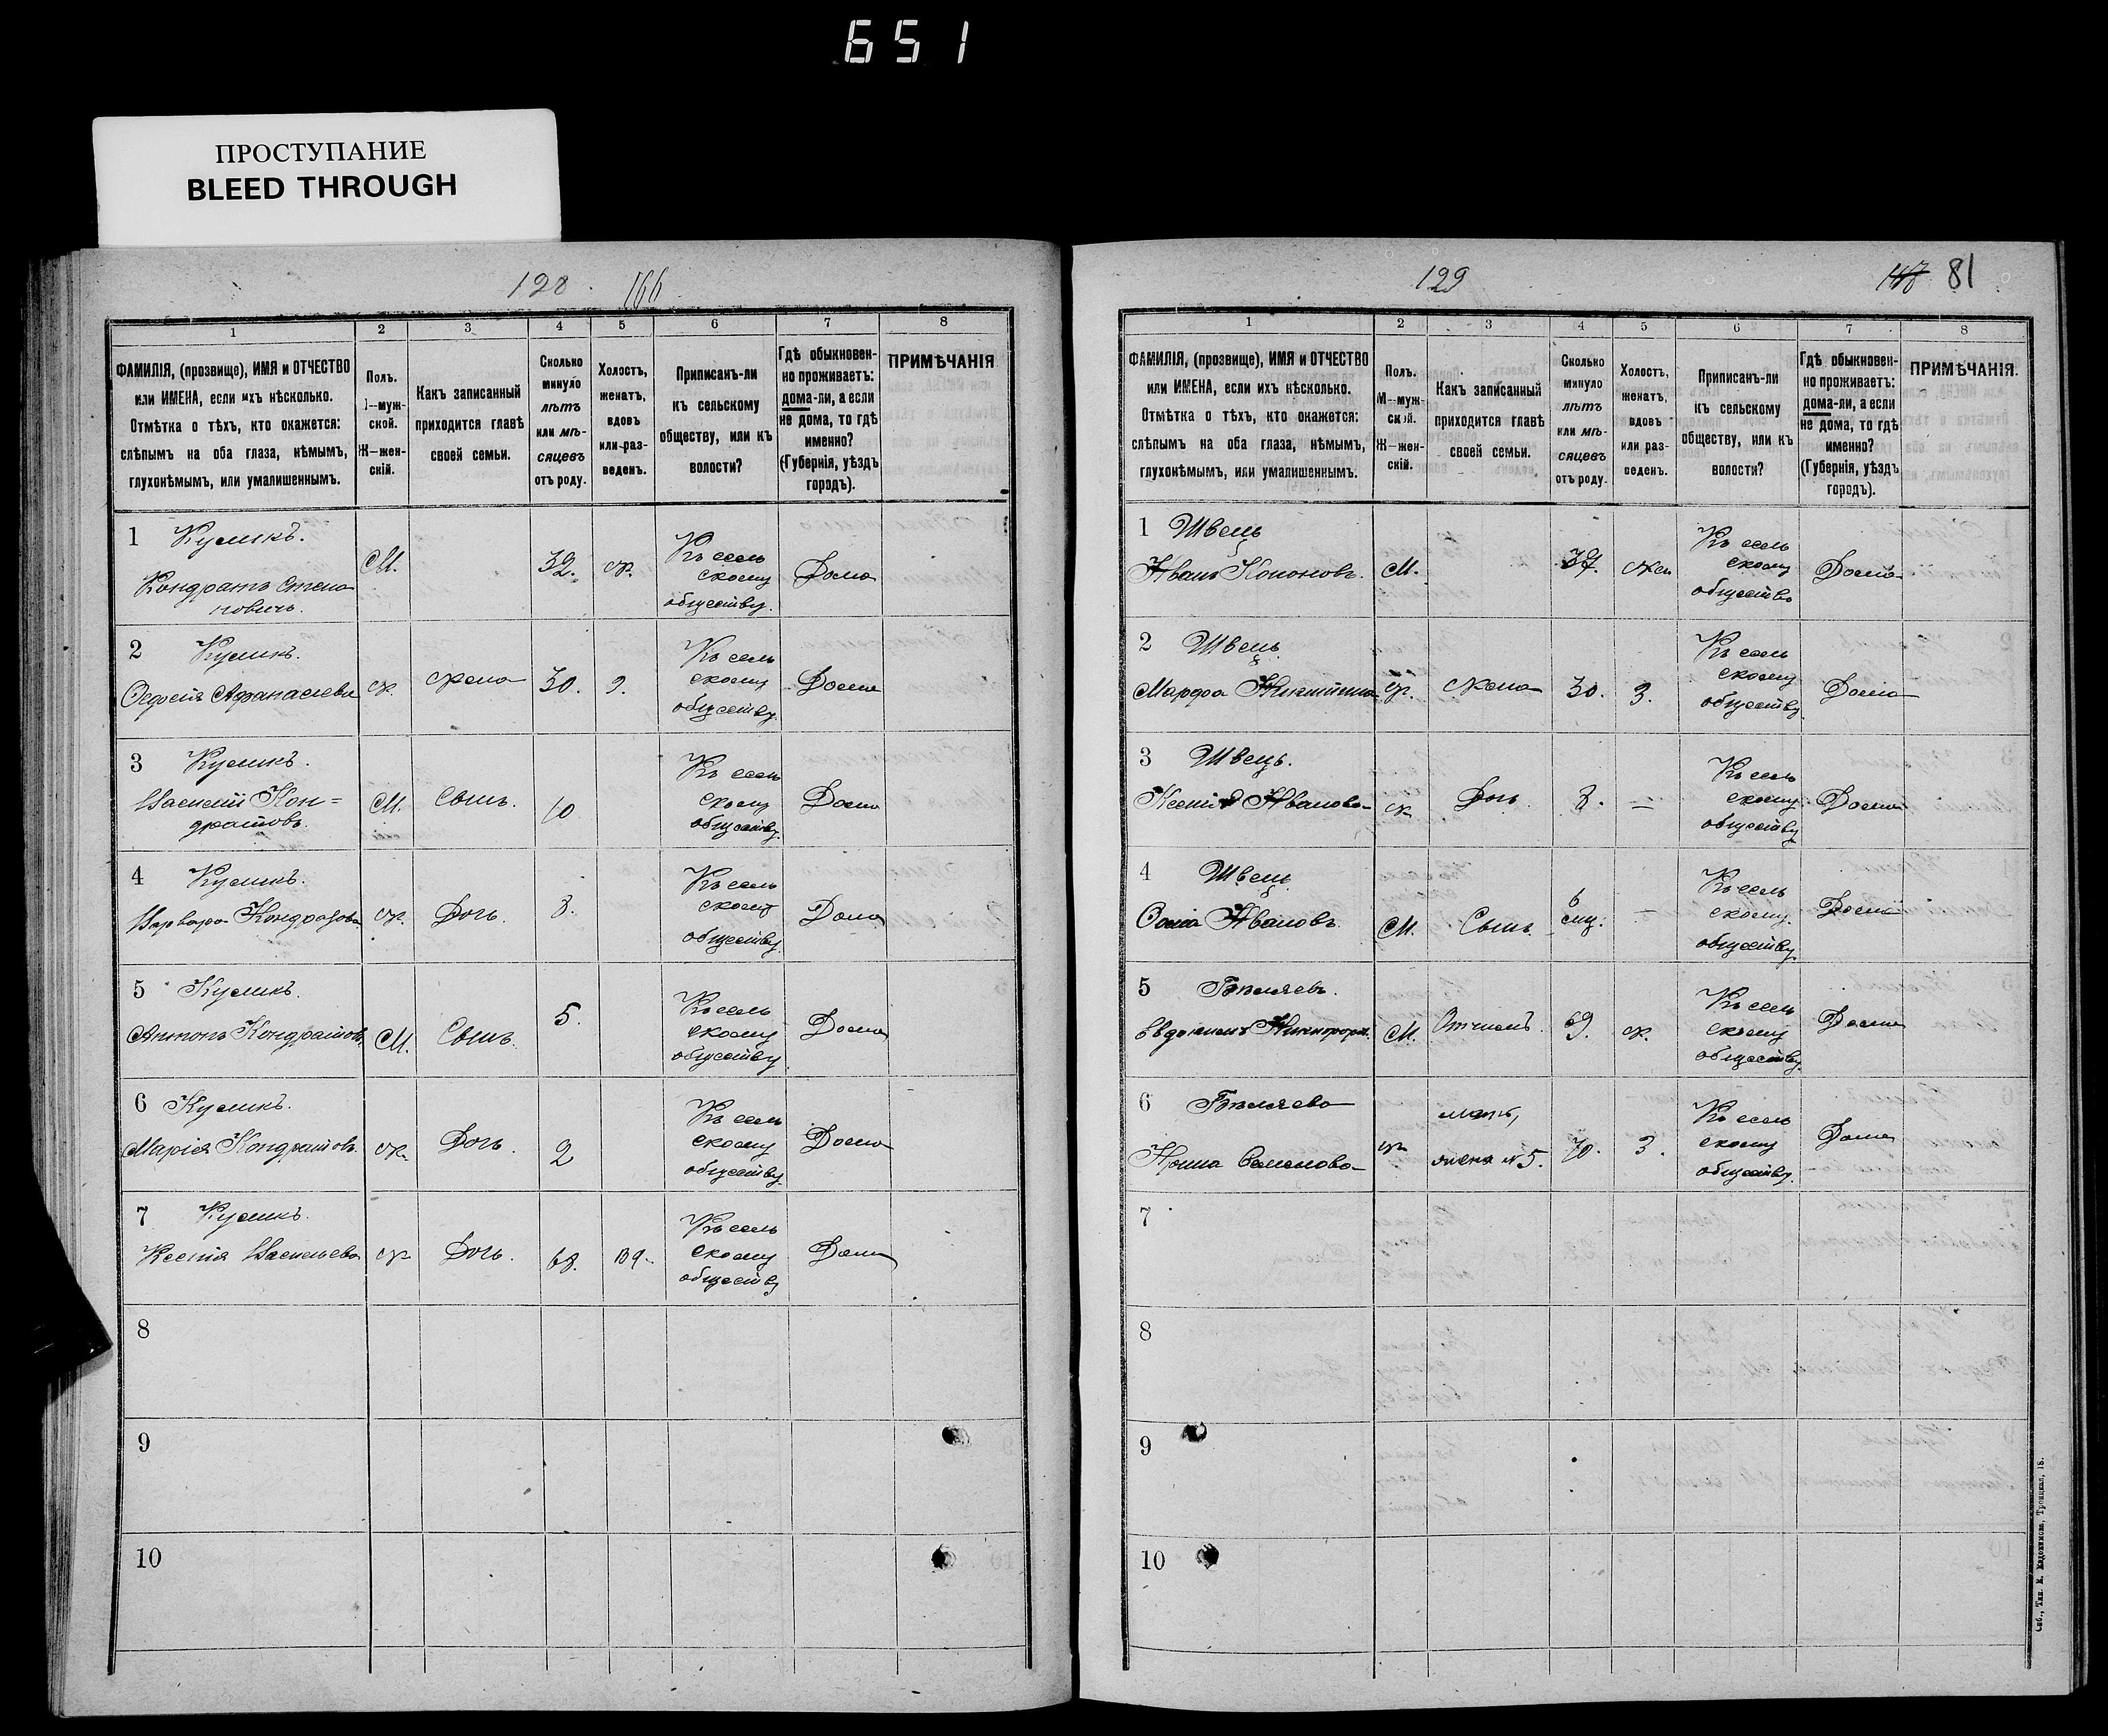 651
ПРОСТУПАНИЕ
BLEED THROUGH
128 166
1 2 3 4 5 6 7 8
ФАМИЛІЯ, (прозвище), ИМЯ и ОТЧЕСТВО
или ИМЕНА, если ихъ нѣсколько.
Отмѣтка о тѣхъ, кто окажется:
слѣпымъ на оба глаза, нѣмымъ,
глухонѣмымъ, или умалишеннымъ.
Полъ.
М—муж-
ской.
Ж—жен-
скій.
Какъ записанный
приходится главѣ
своей семьи.
Сколько
минуло
лѣтъ
или мѣ-
сяцевъ
отъ роду.
Холостъ,
женатъ,
вдовъ
или раз-
веденъ.
Приписанъ-ли
къ сельскому
обществу, или къ
волости?
Гдѣ обыкновен-
но проживаетъ:
дома-ли, а если
не дома, то гдѣ
именно?
(Губернія, уѣздъ
городъ).
ПРИМѢЧАНІЯ
1 Куликъ.
Кондратъ Степа
новичъ.
М. 32. ж.
Къ сель
скому
обществу.
Дома
2 Куликъ.
Федосія Афанасіева
ж. жена 30. З.
Къ сель
скому
обществу.
Дома
3 Куликъ.
Василій Кон=
дратовъ.
М. Сынъ. 10
Къ сель
скому
обществу.
Дома
4 Куликъ.
Варвара Кондратова
ж. Дочь. 8.
Къ сель
скому
обществу.
Дома
5 Куликъ.
Антонъ Кондратовъ
М. Сынъ. 5.
Къ сель
скому
обществу
Дома
6 Куликъ.
Марія Кондратов.
ж. Дочь. 2
Къ сель
скому
обществу.
Дома
7 Куликъ.
Ксенія Васильева
ж Дочь. вд.
Къ сель
скому
обществу
Дома
8
9
10
129 81
1 2 3 4 5 6 7 8
ФАМИЛІЯ, (прозвище), ИМЯ и ОТЧЕСТВО
или ИМЕНА, если ихъ нѣсколько.
Отмѣтка о тѣхъ, кто окажется:
слѣпымъ на оба глаза, нѣмымъ,
глухонѣмымъ, или умалишеннымъ.
Полъ.
М—муж-
ской.
Ж—жен-
скій.
Какъ записанный
приходится главѣ
своей семьи.
Сколько
минуло
лѣтъ
или мѣ-
сяцевъ
отъ роду.
Холостъ,
женатъ,
вдовъ
или раз-
веденъ.
Приписанъ-ли
къ сельскому
обществу, или къ
волости?
Гдѣ обыкновен-
но проживаетъ:
дома-ли, а если
не дома, то гдѣ
именно?
(Губернія, уѣздъ
городъ).
ПРИМѢЧАНІЯ.
1 Швець
Иванъ Кононовъ.
М. жен
Къ сель
скому
обществу
Дома
2 Швець
Марфа Никитина
ж. жена 30. З.
Къ сель
скому
обществу.
Дома
3 Швець.
Ксенія Иванова
ж Дочь. 8. —
Къ сель
скому
обществу
Дома
4 Швець
Ивановъ.
М. Сынъ. 6
мц. —
Къ сель
скому.
обществу.
Дома
5 Бѣляевъ.
Евдокимъ Никифоров.
М. Отчимъ. ж.
Къ сель
скому
обществу.
Дома
6 Бѣляева
Семенова
ж мать,
жена №5. 70. З.
Къ сель
скому
обществу.
Дома
7
8
9
10
Спб., Тип. М. Евдокимова, Троицкая, 18.